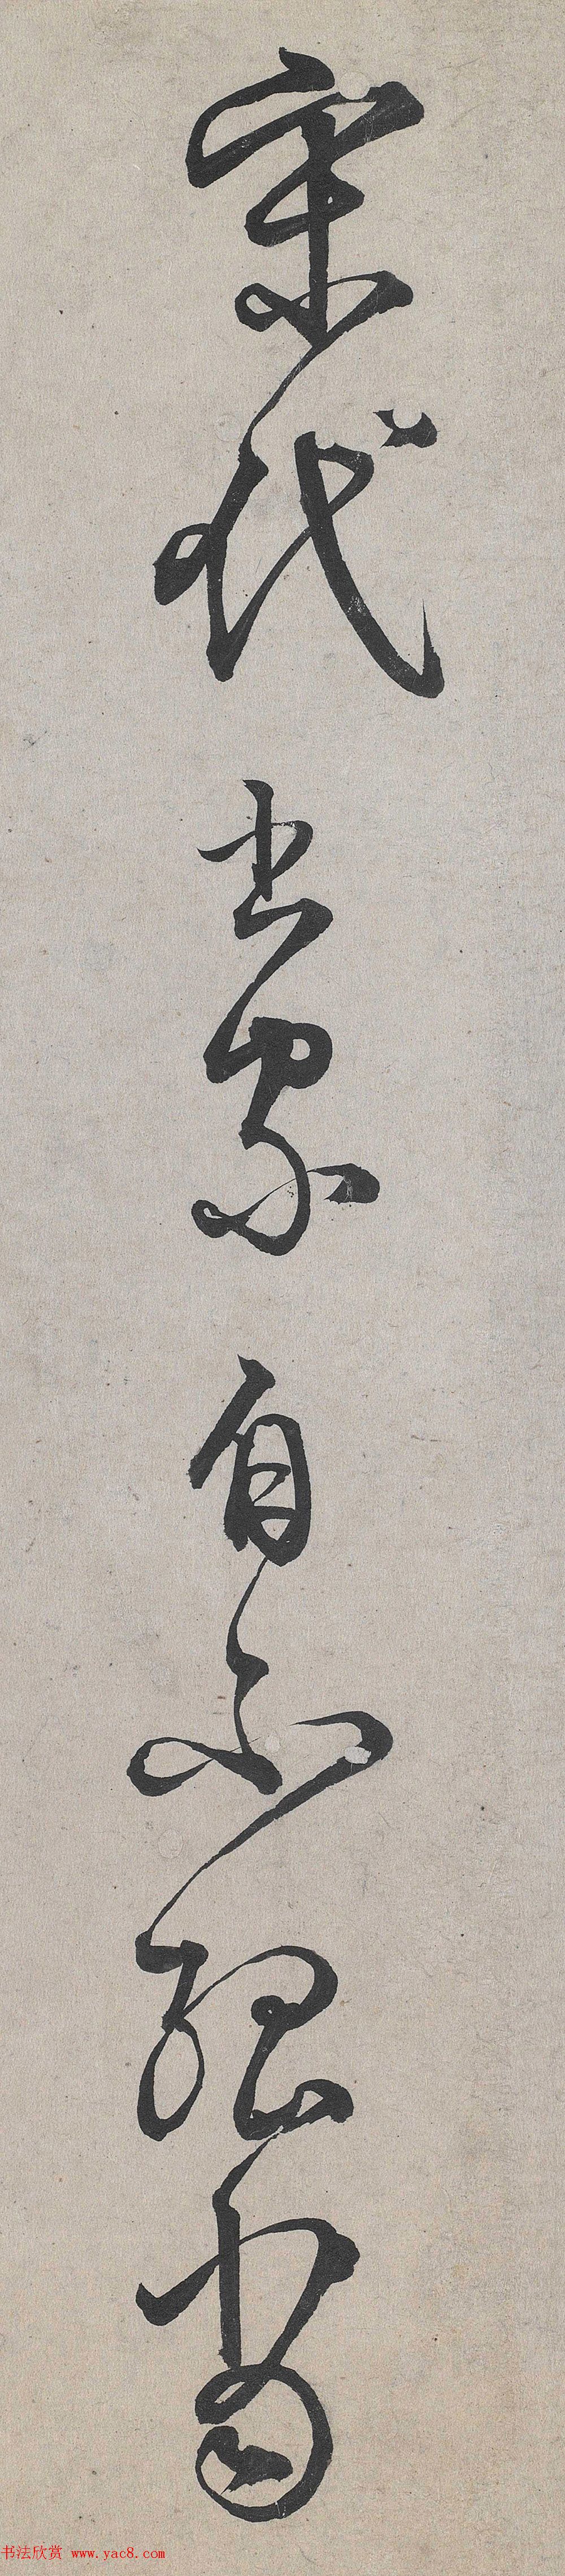 宋代書家自不
书法欣赏 www.yac8.com